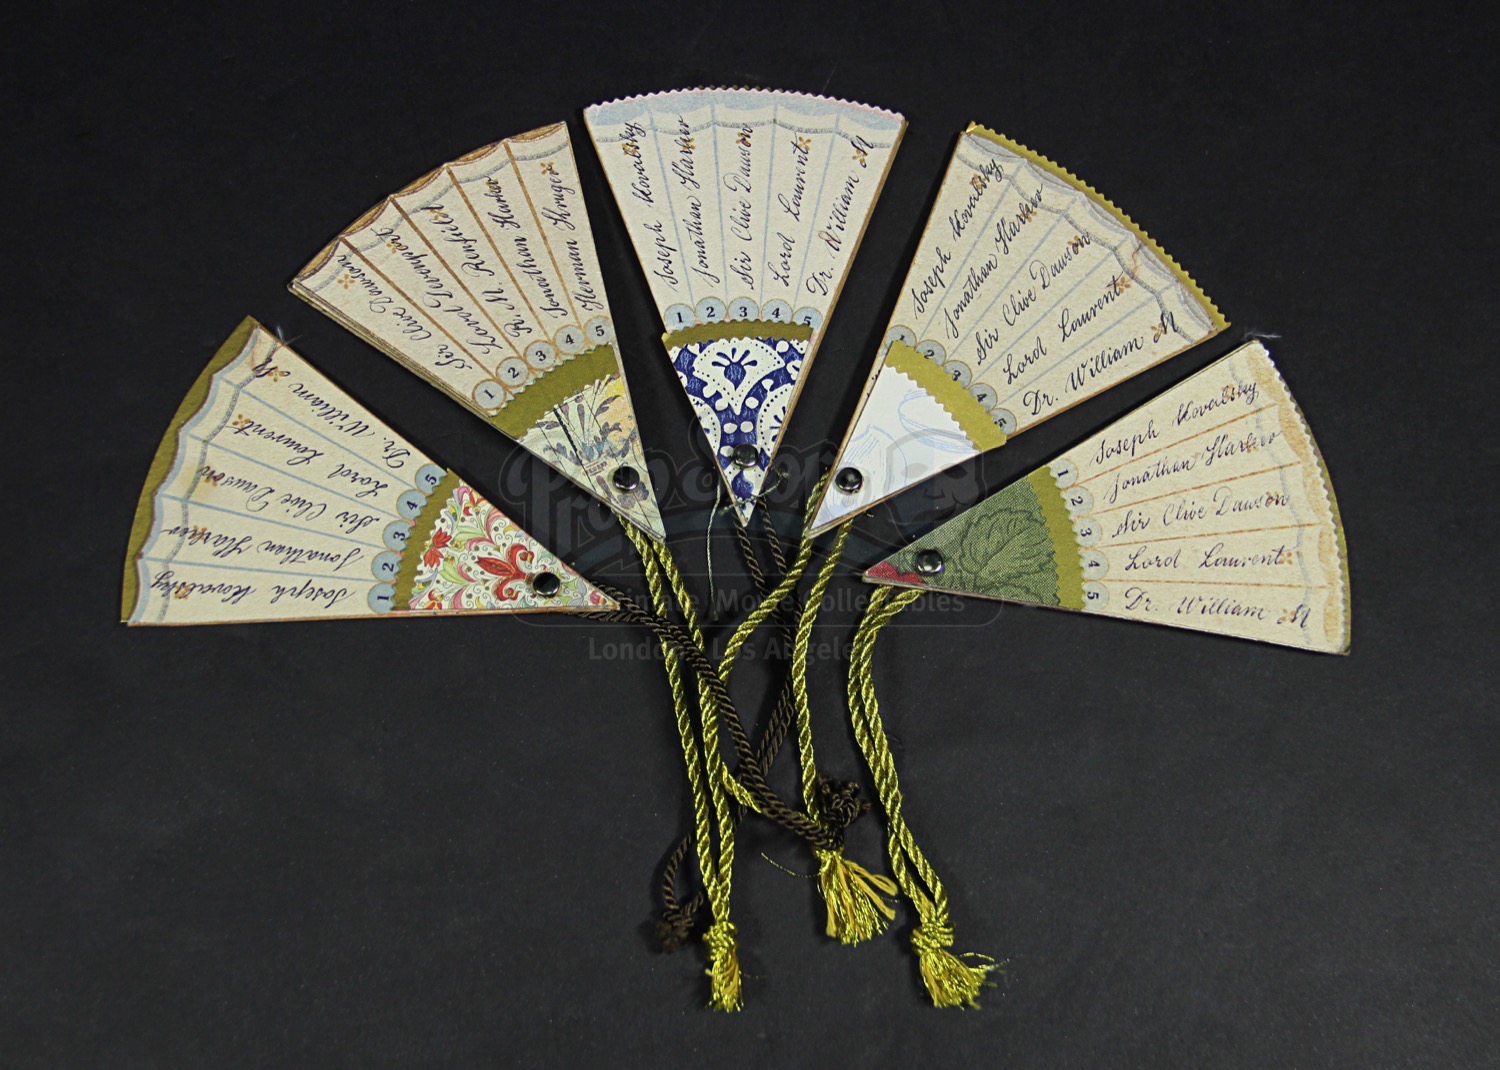 1 Joseph Kovalsky
2 Jonathan Harker
3 Sir Clive Dawson
4 Lord Laurent
5 Dr. William M
1 Sir Clive Dawson
2 Lord Davenport
3 R. M. Renfield
4 Jonathan Harker
5 Herman Kruger
1 Joseph Kovalsky
2 Jonathan Harker
3 Sir Clive Dawson
4 Lord Laurent
5 Dr. William M
1 Joseph Kovalsky
2 Jonathan Harker
3 Sir Clive Dawson
4 Lord Laurent
5 Dr. William M
1 Joseph Kovalsky
2 Jonathan Harker
3 Sir Clive Dawson
4 Lord Laurent
5 Dr. William M
Prop Store
Ultimate Movie Collectibles
London Los Angeles